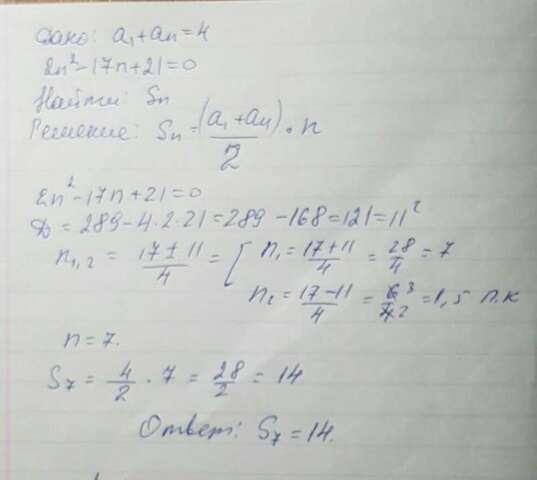 Дано: a₁+aₙ=4
2n²-17n+21=0
Найти: Sₙ
Решение: Sₙ=(a₁+aₙ)/2 • n
2n²-17n+21=0
D=289-4·2·21=289-168=121=11²
n₁,₂ = (17±11)/4 = [ n₁=(17+11)/4=28/4=7
n₂=(17-11)/4=6³/4₂=1,5 п.к
n=7.
S₇=4/2·7=28/2=14
Ответ: S₇=14.